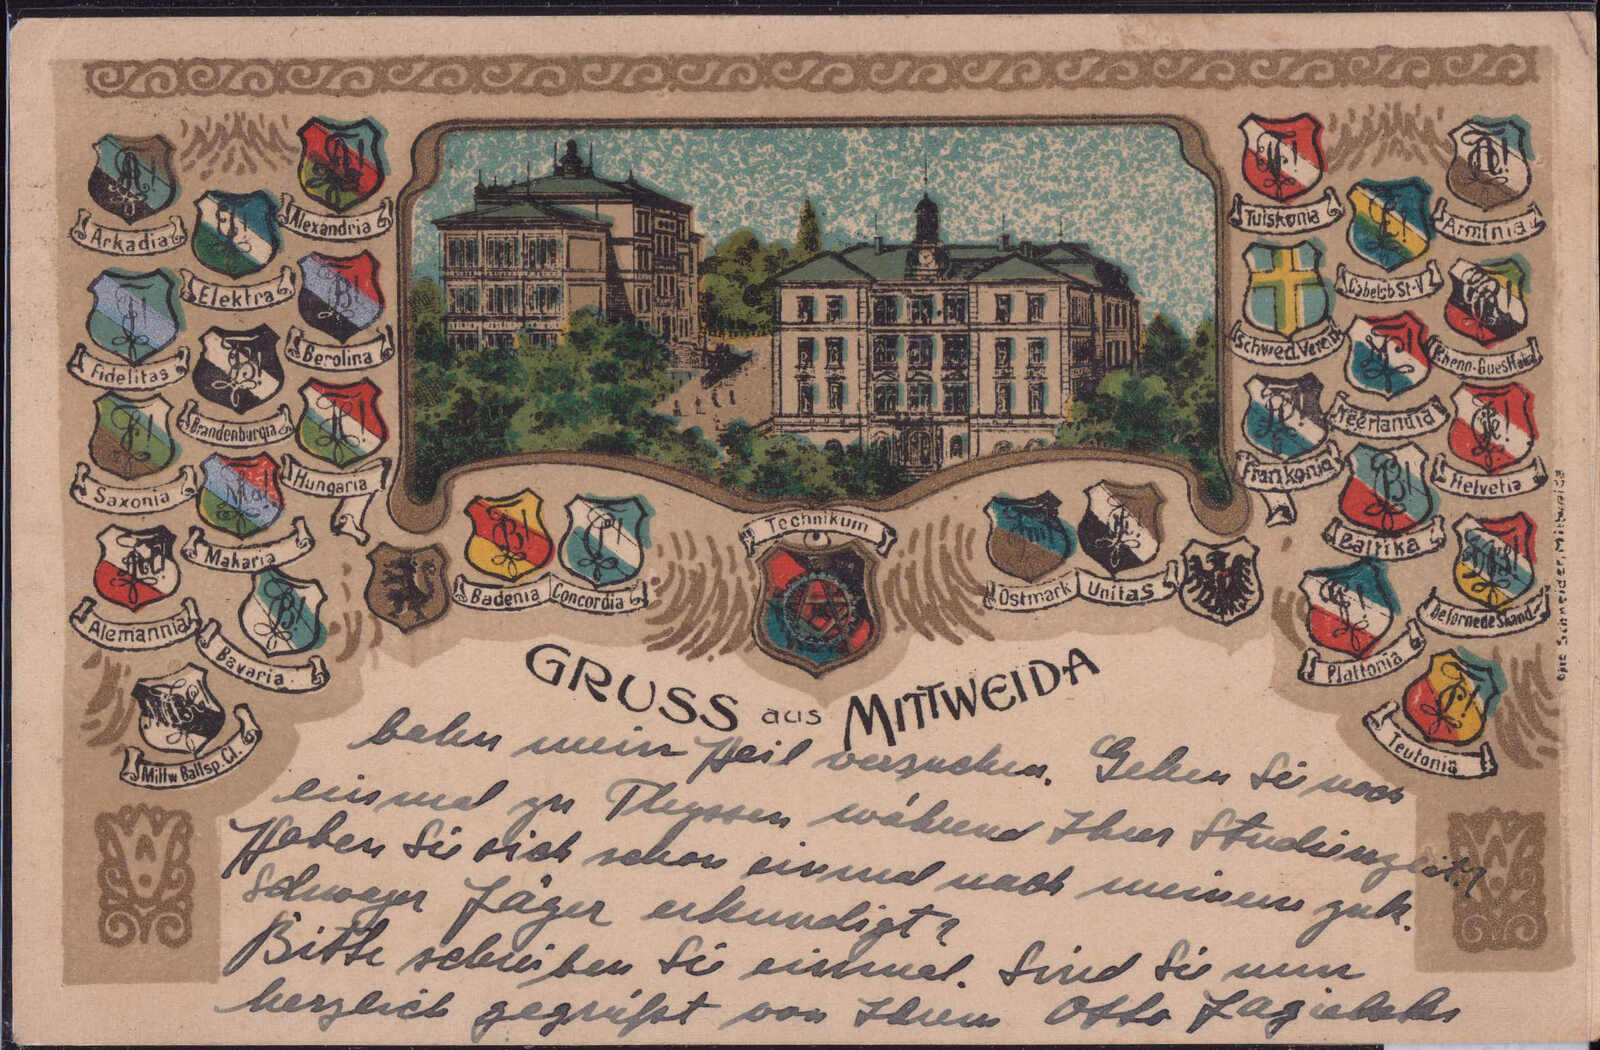 Arkadia
Alexandria
Elektra
Fidelitas
Berolina
Brandenburgia
Saxonia
Hungaria
Makaria
Alemannia
Bavaria
Mittw Ballsp. Cl.
Badenia
Concordia
Technikum
Ostmark
Unitas
Tuiskonia
Arminia
Gabelsb St-V
Schwed. Verein
Rhenn-Guestfalia
Neerlandia
Frankonia
Helvetia
Baltika
De fornede Skand.
Plattonia
Teutonia
Schneider, Mittweida
GRUSS aus MITTWEIDA
mein Heil versuchen. Gehen Sie noch
einmal zu Thyssen während Ihrer Studienzeit?
Haben Sie sich schon einmal nach meinem zuk.
Schwager Jäger erkundigt?
Bitte schreiben Sie einmal. Sind Sie nun
herzlich gegrüßt von Ihrem Otto